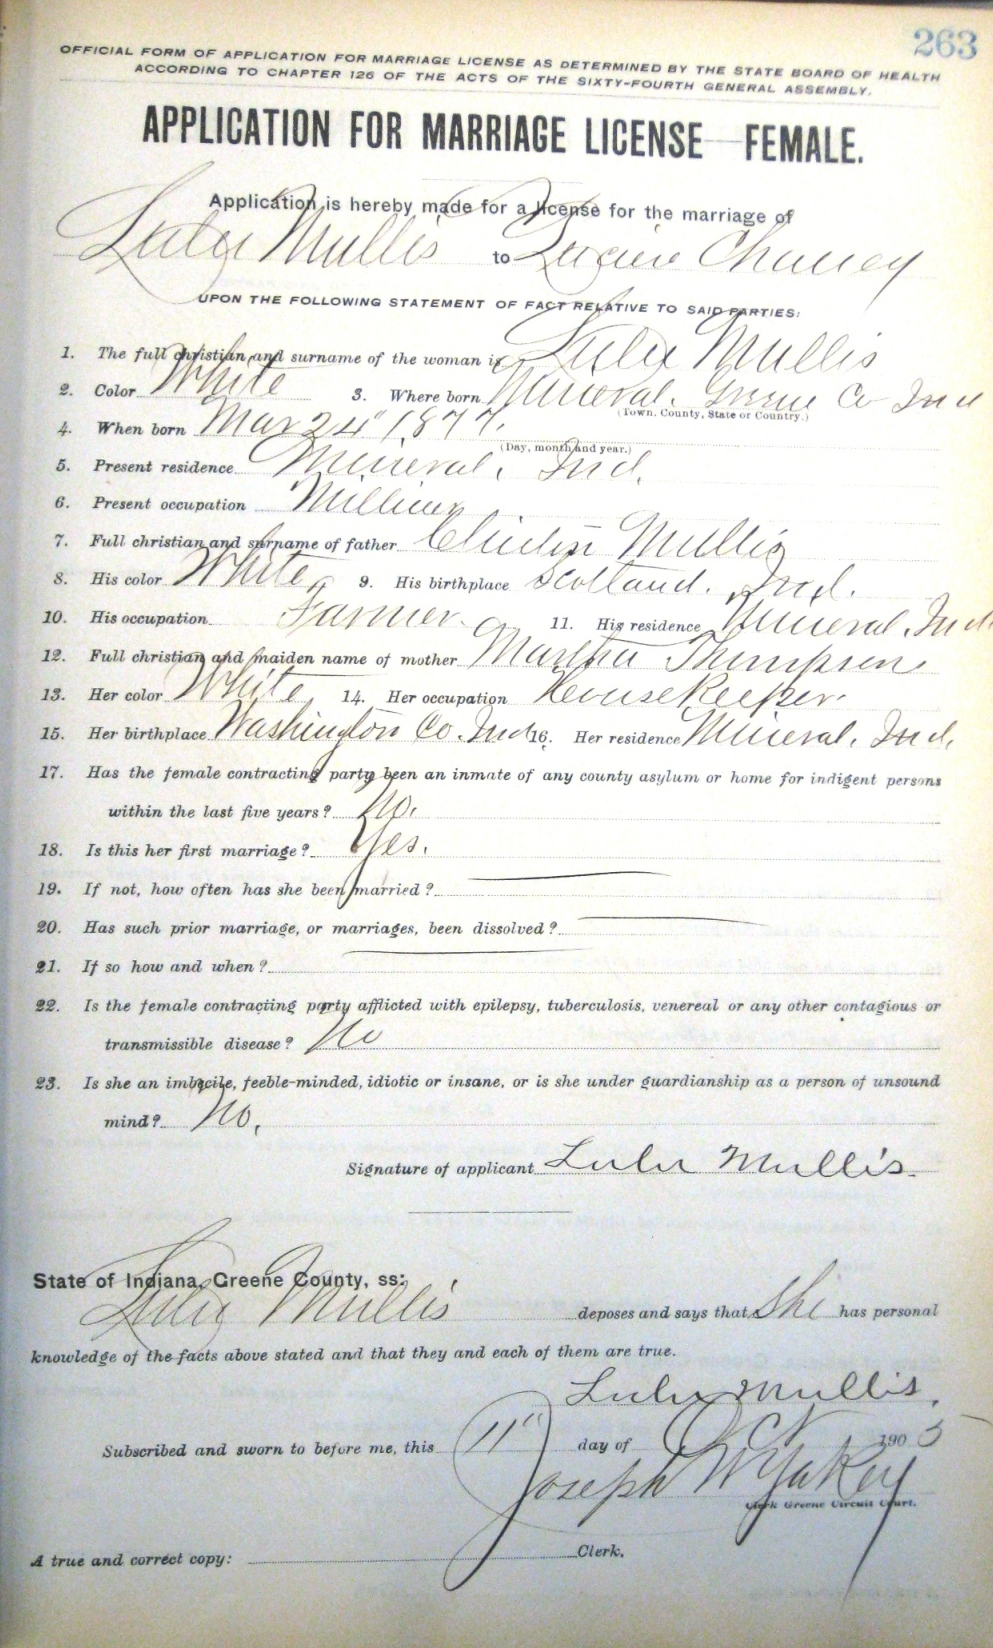 263
OFFICIAL FORM OF APPLICATION FOR MARRIAGE LICENSE AS DETERMINED BY THE STATE BOARD OF HEALTH
ACCORDING TO CHAPTER 126 OF THE ACTS OF THE SIXTY-FOURTH GENERAL ASSEMBLY.
APPLICATION FOR MARRIAGE LICENSE FEMALE.
Application is hereby made for a license for the marriage of
Lulu Mullis to Chaney
UPON THE FOLLOWING STATEMENT OF FACT RELATIVE TO SAID PARTIES:
1. The full christian and surname of the woman is Lulu Mullis
2. Color White 3. Where born Mineral. Greene Co Ind
(Town. County, State or Country.)
4. When born Mar 24" 1877.
(Day, month and year.)
5. Present residence Mineral. Ind.
6. Present occupation Milliner
7. Full christian and surname of father Mullis
8. His color White, 9. His birthplace Scotland. Ind.
10. His occupation Farmer. 11. His residence Mineral. Ind
12. Full christian and maiden name of mother Martha Thompson
13. Her color White 14. Her occupation Housekeeper.
15. Her birthplace Washington Co. Ind 16. Her residence Mineral. Ind.
17. Has the female contracting party been an inmate of any county asylum or home for indigent persons
within the last five years? No.
18. Is this her first marriage? Yes.
19. If not, how often has she been married?
20. Has such prior marriage, or marriages, been dissolved?
21. If so how and when?
22. Is the female contracting party afflicted with epilepsy, tuberculosis, venereal or any other contagious or
transmissible disease? No
23. Is she an imbecile, feeble-minded, idiotic or insane, or is she under guardianship as a person of unsound
mind? No.
Signature of applicant Lulu Mullis.
State of Indiana, Greene County, ss:
Lulu Mullis deposes and says that She has personal
knowledge of the facts above stated and that they and each of them are true.
Lulu Mullis.
Subscribed and sworn to before me, this 11" day of Oct 1905
Joseph W Yakey
Clerk Greene Circuit Court.
A true and correct copy: Clerk.